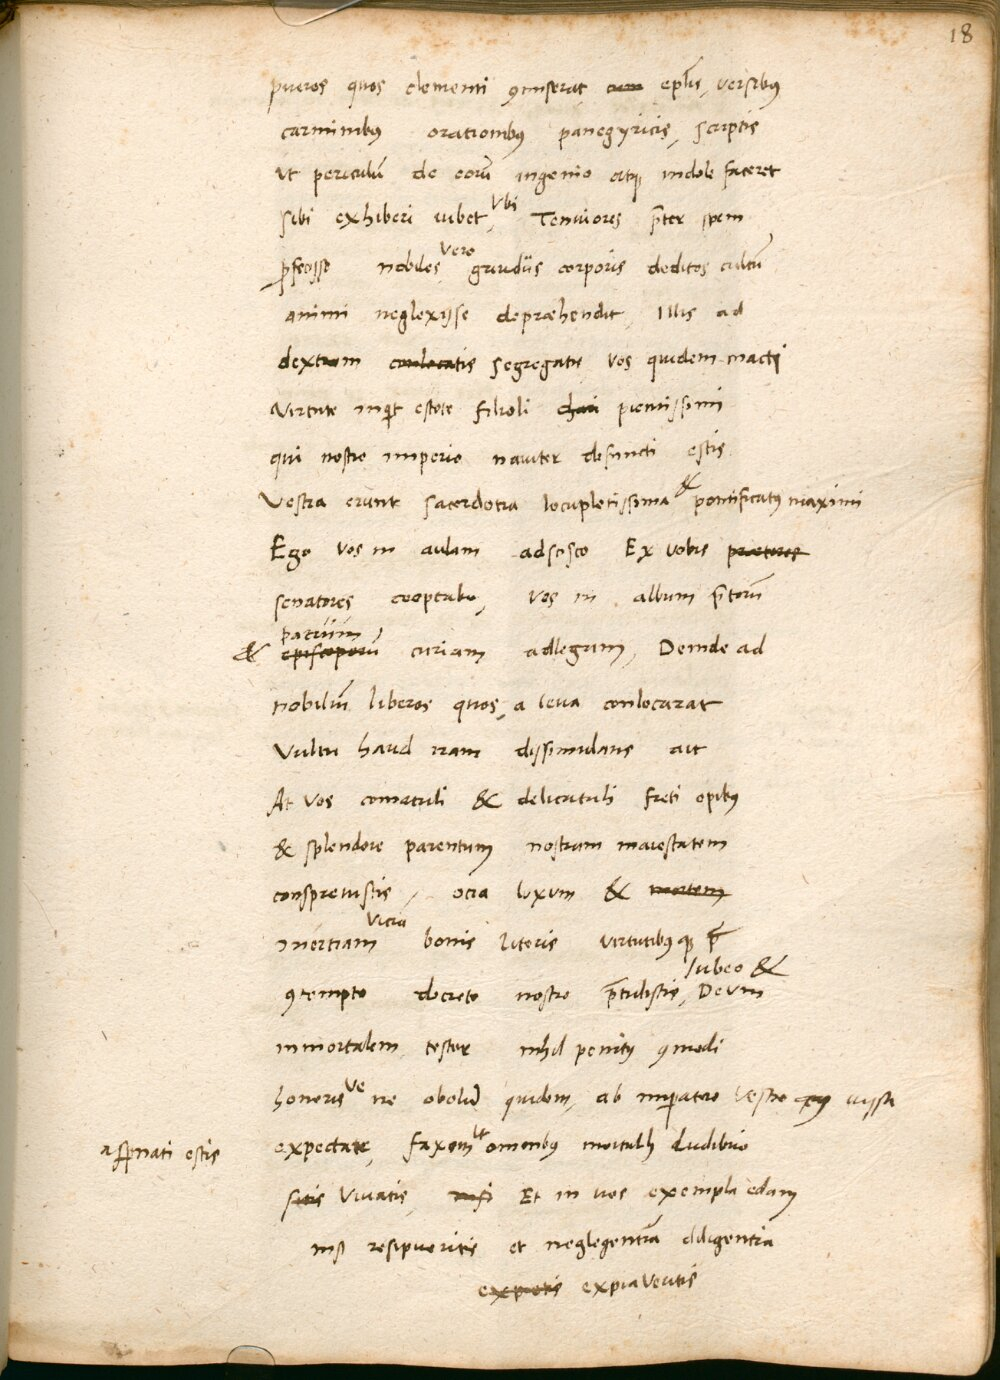 18
pueros quos clementi ꝯmiserat, cum epl̃is, versibꝰ
carminibꝰ orationibꝰ panegyricis, scriptis
Ut periculũ de eorũ ingenio atqꝫ indole faceret
sibi exhiberi iubet, Vbi Tenuiores p̃ter spem
ꝓfecisse nobiles vero gaudiis corporis deditos cultũ
animi neglexisse depræhendit, Illis ad
dextram conlocatis segregatis vos quidem macti
Virtute inqͥt estote filioli chari pientissimi
qui nostro imperio naviter defuncti estis
Vestra erunt sacerdotia locupletissima & pontificatꝰ maximi
Ego vos in aulam adscisco Ex vobis prætores
senatores cooptabo, vos in album p̃torũ
& episcoporũ patrum curiam adlegam, Deinde ad
nobiliũ liberos quos, a leva conlocarat
Vultu haud iram dissimulans ait
At Vos comatuli & delicatuli freti opibꝰ
& splendore parentum nostram maiestatem
consprevistis, ocia luxum & mortem
inertiam vicia bonis literis virtutibusqꝫ p̃
ꝯtempto decreto nostro p̃tulistis, Iubeo & Deum
inmortalem testor nihil penitꝰ ꝯmodi
honoris ve ne obolũ quidem, ab imꝑatore vestro iussa
aspernati estis
expectate, faxem ut omnibus mortalib ludibrio
sitis Vivatis, nisi Et in vos exempla edam
nisi resipueritis et neglegentiã diligentia
expiaveritis